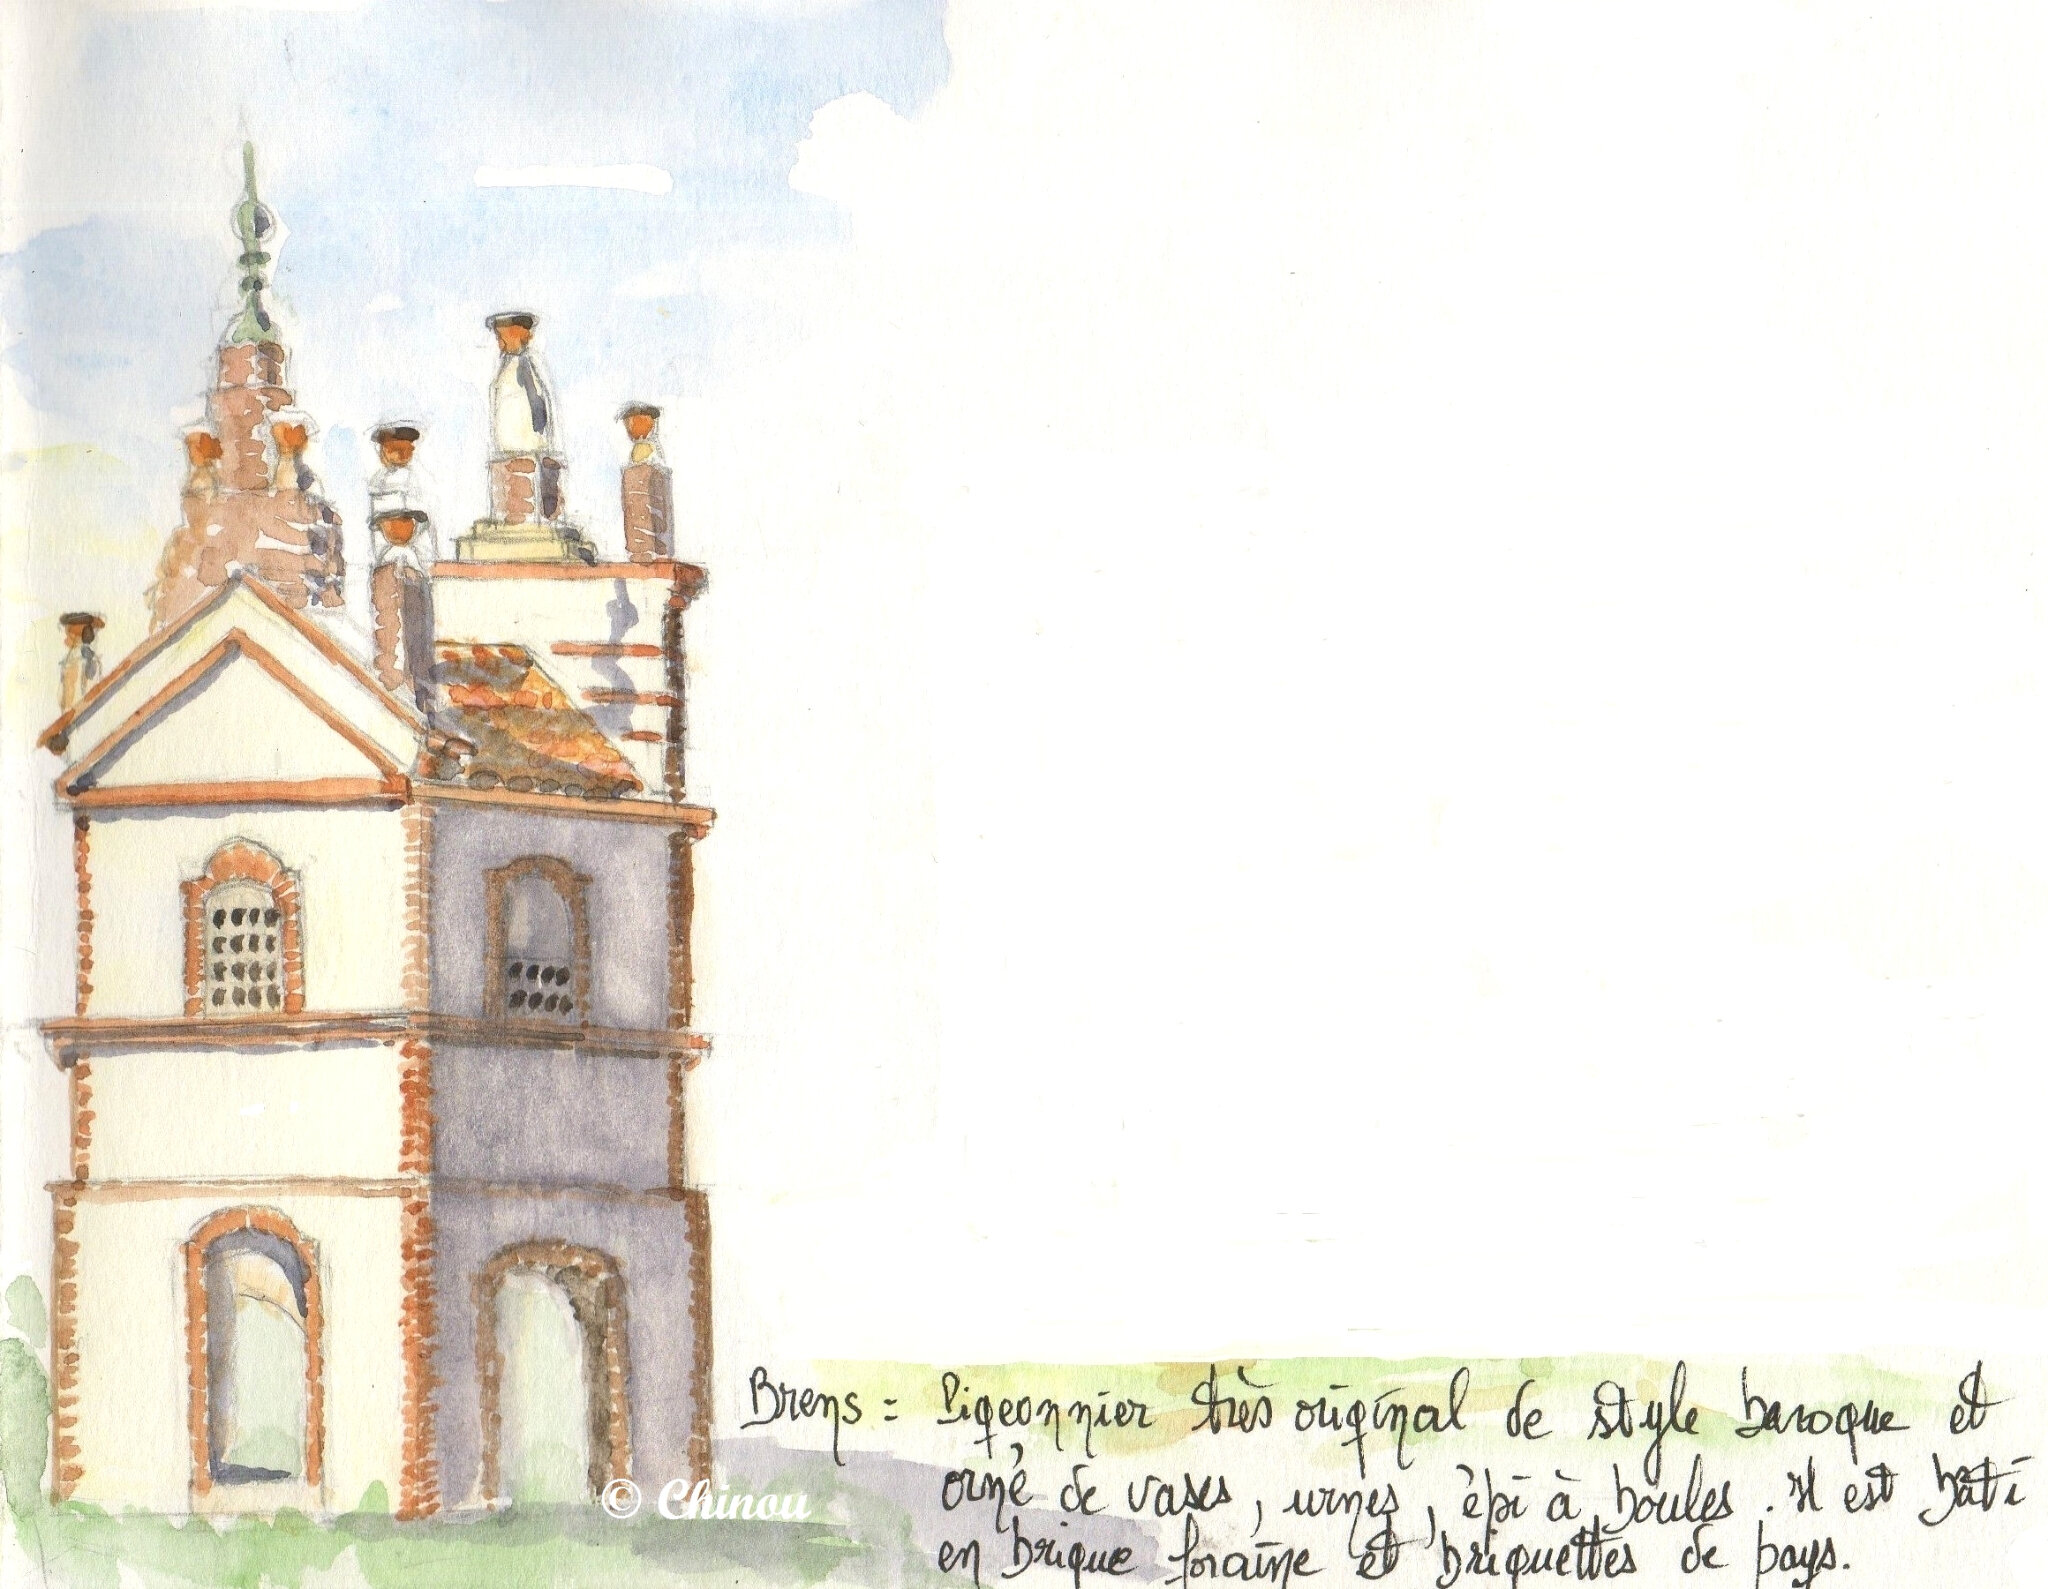 Brens = Pigeonnier très original de style baroque et
orné de vases, urnes, épi à boules. Il est bâti
en brique foraine et briquettes de pays.
© Chinou